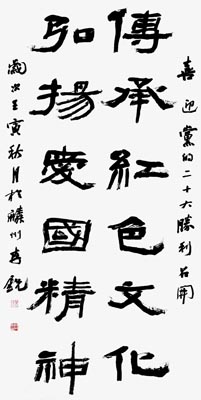 喜迎黨的二十大勝利召開
傳承紅色文化
弘揚愛國精神
歲次壬寅秋月於麟州